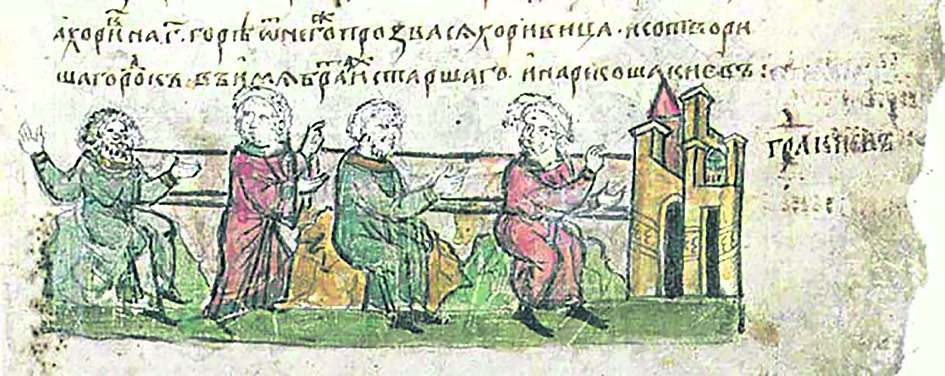 ахориⷡ на .г҃. горѣ ѿ негоⷤ прозвася хоривица · исотвори
шагороⷣкъ · въ имя браⷮ иⷯ старшаго · инарекоша киевъ :
граⷣ киевъ